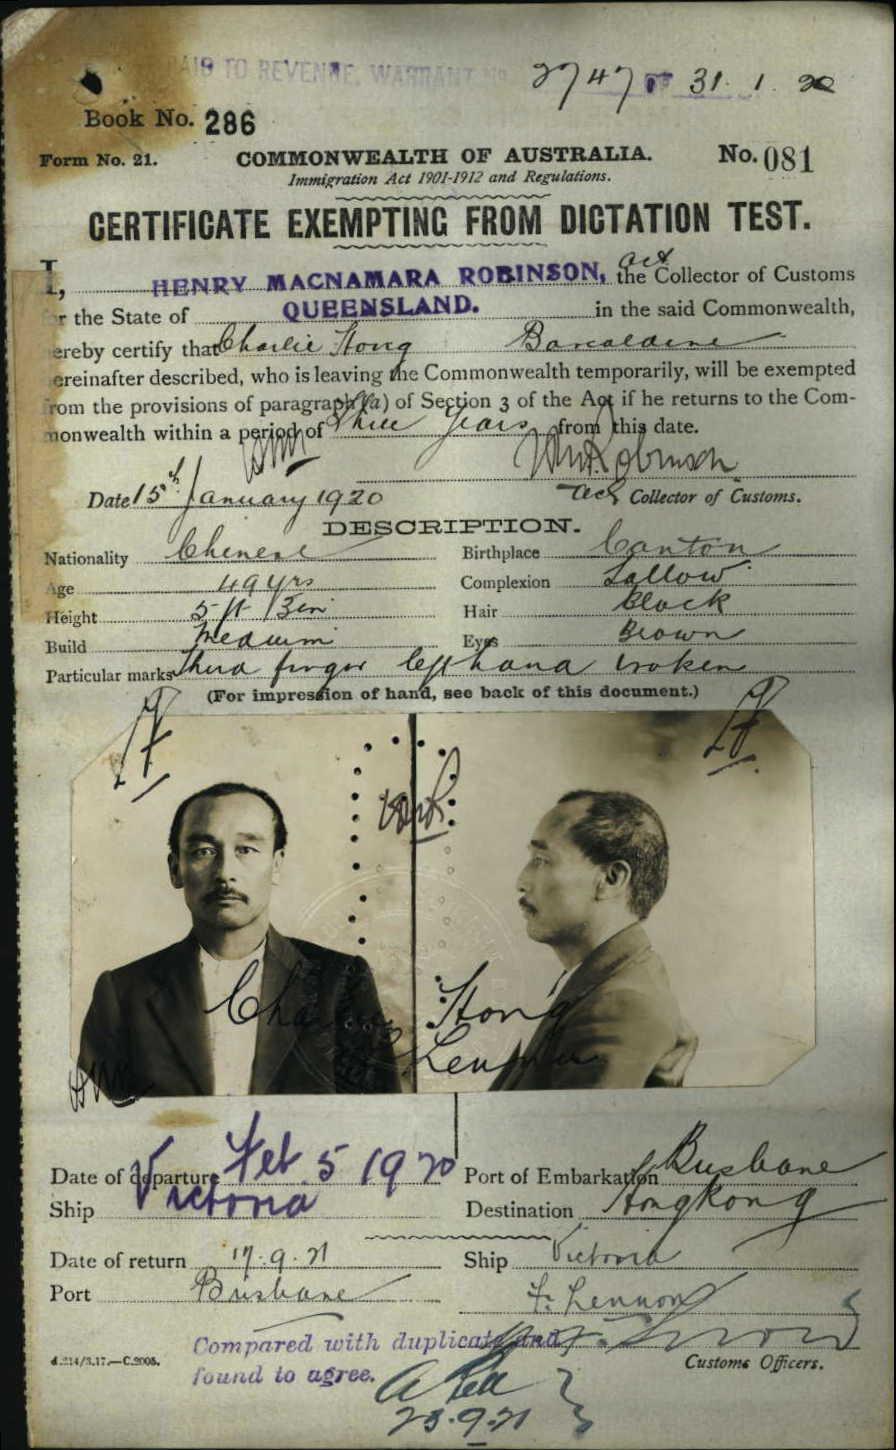 PAID TO REVENUE. WARRANT No 2747 of 31.1.20
Book No. 286
Form No. 21. COMMONWEALTH OF AUSTRALIA. No. 081
Immigration Act 1901-1912 and Regulations.
CERTIFICATE EXEMPTING FROM DICTATION TEST.
I, HENRY MACNAMARA ROBINSON, act the Collector of Customs
for the State of QUEENSLAND. in the said Commonwealth,
hereby certify that Charlie Hong Barcaldine
hereinafter described, who is leaving the Commonwealth temporarily, will be exempted
from the provisions of paragraph (a) of Section 3 of the Act if he returns to the Com-
monwealth within a period of Three Years from this date.
HMR HMRobinson
Date 15th January 1920 Actg Collector of Customs.
DESCRIPTION.
Nationality Chinese Birthplace Canton
Age 49 yrs Complexion Sallow
Height 5 ft 3 in Hair Black
Build Medium Eyes Brown
Particular marks Third finger left hand broken
(For impression of hand, see back of this document.)
HMR
Charlie Hong
F. Lennon
HMR
Date of departure Feb 5 1920 Port of Embarkation Brisbane
Ship Victoria Destination Hongkong
Date of return 17.9.21 Ship Victoria
Port Brisbane F. Lennon
Compared with duplicate and
found to agree. Customs Officers.
d.214/3.17.—C.2008.
23.9.21